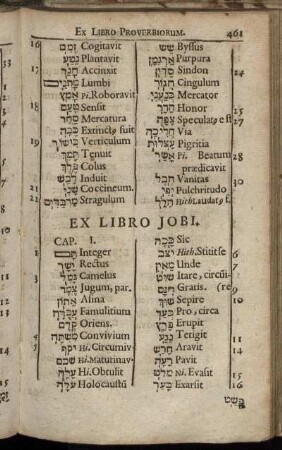 EX LIBRO PROVERBIORUM. 461
16 זָמַם Cogitavit
נָטַע Plantavit
17 חָגַר Accinxit
מָתְנַיִם Lumbi
אָמַץ Pi. Roboravit
18 טָעַם Sensit
סַחַר Mercatura
כָּבָה Extinctꝰ fuit
19 כִּישׁוֹר Verticulum
תָּמַךְ Tenuit
פֶּלֶךְ Colus
21 לָבַשׁ Induit
שָׁנִי Coccineum.
22 מַרְבַדִּים Stragulum
שֵׁשׁ Byssus
אַרְגָּמָן Purpura
24 סָדִין Sindon
חֲגוֹר Cingulum
כְּנַעֲנִי Mercator
הָדָר Honor 25
צָפָה Speculatꝰ est 27
הֲלִיכָה Via
עַצְלוּת Pigritia
אָשַׁר Pi. Beatum 28
prædicavit
הֶבֶל Vanitas 30
יֳפִי Pulchritudo
הָלַל Hith. Laudatꝰ f.
EX LIBRO JOBI.
CAP. I.
תָּם Integer
יָשָׁר Rectus
3 גָּמָל Camelus
צֶמֶד Jugum, par.
אָתוֹן Asina
עֲבֻדָּה Famulitium
קֶדֶם Oriens.
4 מִשְׁתֶּה Convivium
Hi. Circumiv-
שָׁכַם Hi. Maturinav-
עָלָה Hi. Obtulit
עֹלָה Holocaustū
כָּכָה Sic
יָצַב Hith. Stitit se 6
אַיִן Unde 7
שׁוּט Itare, circūi-
חִנָּם Gratis. (re 9
שׂוּךְ Sepire 10
בְּעַד Pro, circa
פָּרַץ Erupit
נָגַע Tetigit 11
חָרַשׁ Aravit 14
רָעָה Pavit
מָלַט Ni. Evasit 15
בָּעַר Exarsit 16
פָּשַׁט